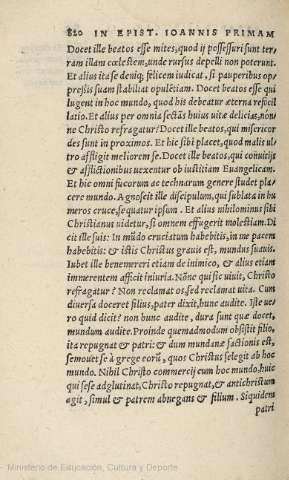 820 IN EPIST. IOANNIS PRIMAM
Docet ille beatos esse mites, quod ij possessuri sunt ter,
ram illam cœlestem, unde rursus depelli non poterunt.
Et alius ita se deniq; felicem iudicat, si pauperibus op-
preßis suam stabiliat opulētiam. Docet beatos esse qui
lugent in hoc mundo, quod his debeatur æterna refocil
latio. Et alius per omnia sectās huius uitæ delicias, non/
ne Christo refragatur? Docet ille beatos, qui misericor
des sunt in proximos. Et hic sibi placet, quod malis ul/
tro affligit meliorem se. Docet ille beatos, qui conuicijs
& afflictionibus uexentur ob iustitiam Euangelicam.
Et hic omni fucorum ac technarum genere studet pla/
cere mundo. Agnoscit ille discipulum, qui sublata in hu
meros cruce, sequatur ipsum. Et alius nihilominus sibi
Christianus uidetur, si omnem effugerit molestiam. Di
cit ille suis: In mūdo cruciatum habebitis, in me pacem
habebitis: & istis Christus grauis est, mundus suauis.
Iubet ille benemereri etiam de inimico, & alius etiam
immerentem afficit iniuria. Nōne qui sic uiuit, Christo
refragatur? Non reclamat os, sed reclamat uita. Cum
diuersa doceret filius, pater dixit, hunc audite. Iste ue/
ro quid dicit? non hunc audite, dura sunt quæ docet,
mundum audite. Proinde quemadmodum obsistit filio,
ita repugnat & patri: & dum mundanæ factionis est,
semouet se à grege eorū, quos Christus selegit ab hoc
mundo. Nihil Christo commercij cum hoc mundo, huic
qui sese adglutinat, Christo repugnat, & antichristum
agit, simul & patrem abnegans & filium. Siquidem
patri
Ministerio de Educación, Cultura y Deporte